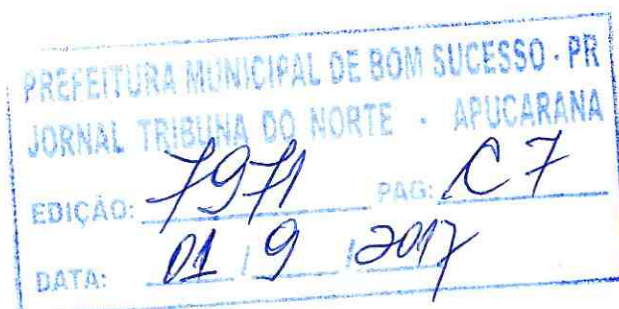 PREFEITURA MUNICIPAL DE BOM SUCESSO - PR
JORNAL TRIBUNA DO NORTE - APUCARANA
EDIÇÃO: 7971 PAG: C7
DATA: 01 / 9 / 2017